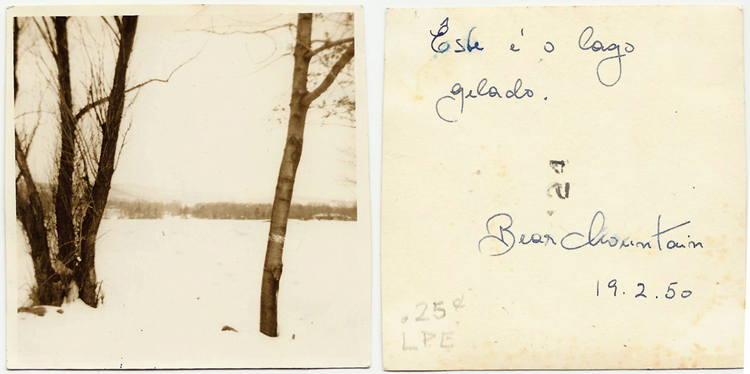 Êste é o lago
gelado.
24
Bear Mountain
19.2.50
.25¢
LPE